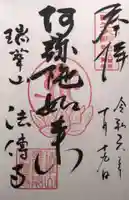 奉拝
令和六年
十月十七日
阿弥陀如来
瑞華山
法傳寺